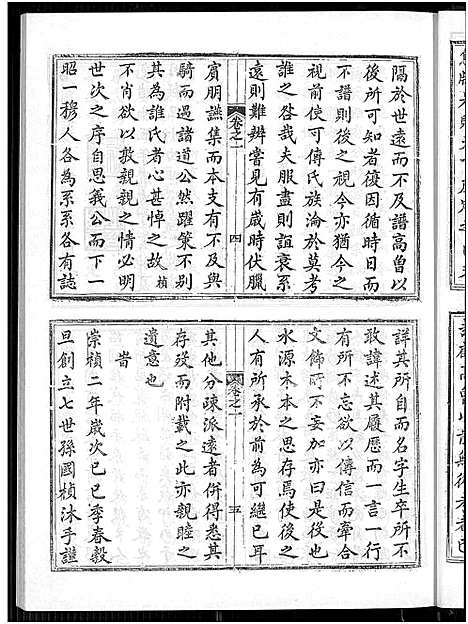 隔於世遠而不及譜高曾以
後所可知者復因循而憚於
不譜則後之視今亦猶今之
視前使可傳氏族淪於莫考
誰之咎哉夫服盡則誼衰系
遠則難辨嘗見有歲時伏臘
卷之一 四
賓朋讌集而本支有不及與
騎而過諸道公然躍策不別
其為誰氏者心甚悼之故楨
不肖欲以敦親親之情必明
世次之序自思義公而下一
昭一穆人各為系系各有誌
詳其所自而名字生卒所不
敢諱述其履歷而一言一行
有所不忘欲以傳信而牽合
文飾時不妄加亦曰是役也
水源木本之思存焉使後之
人有所承於前可繼已耳
卷之一 五
其他分疎派遠者併得悉其
存殁而附載之此亦親睦之
遺意也
旹
崇禎二年歲次己巳季春穀
旦創立七世孫國楨沐手謹